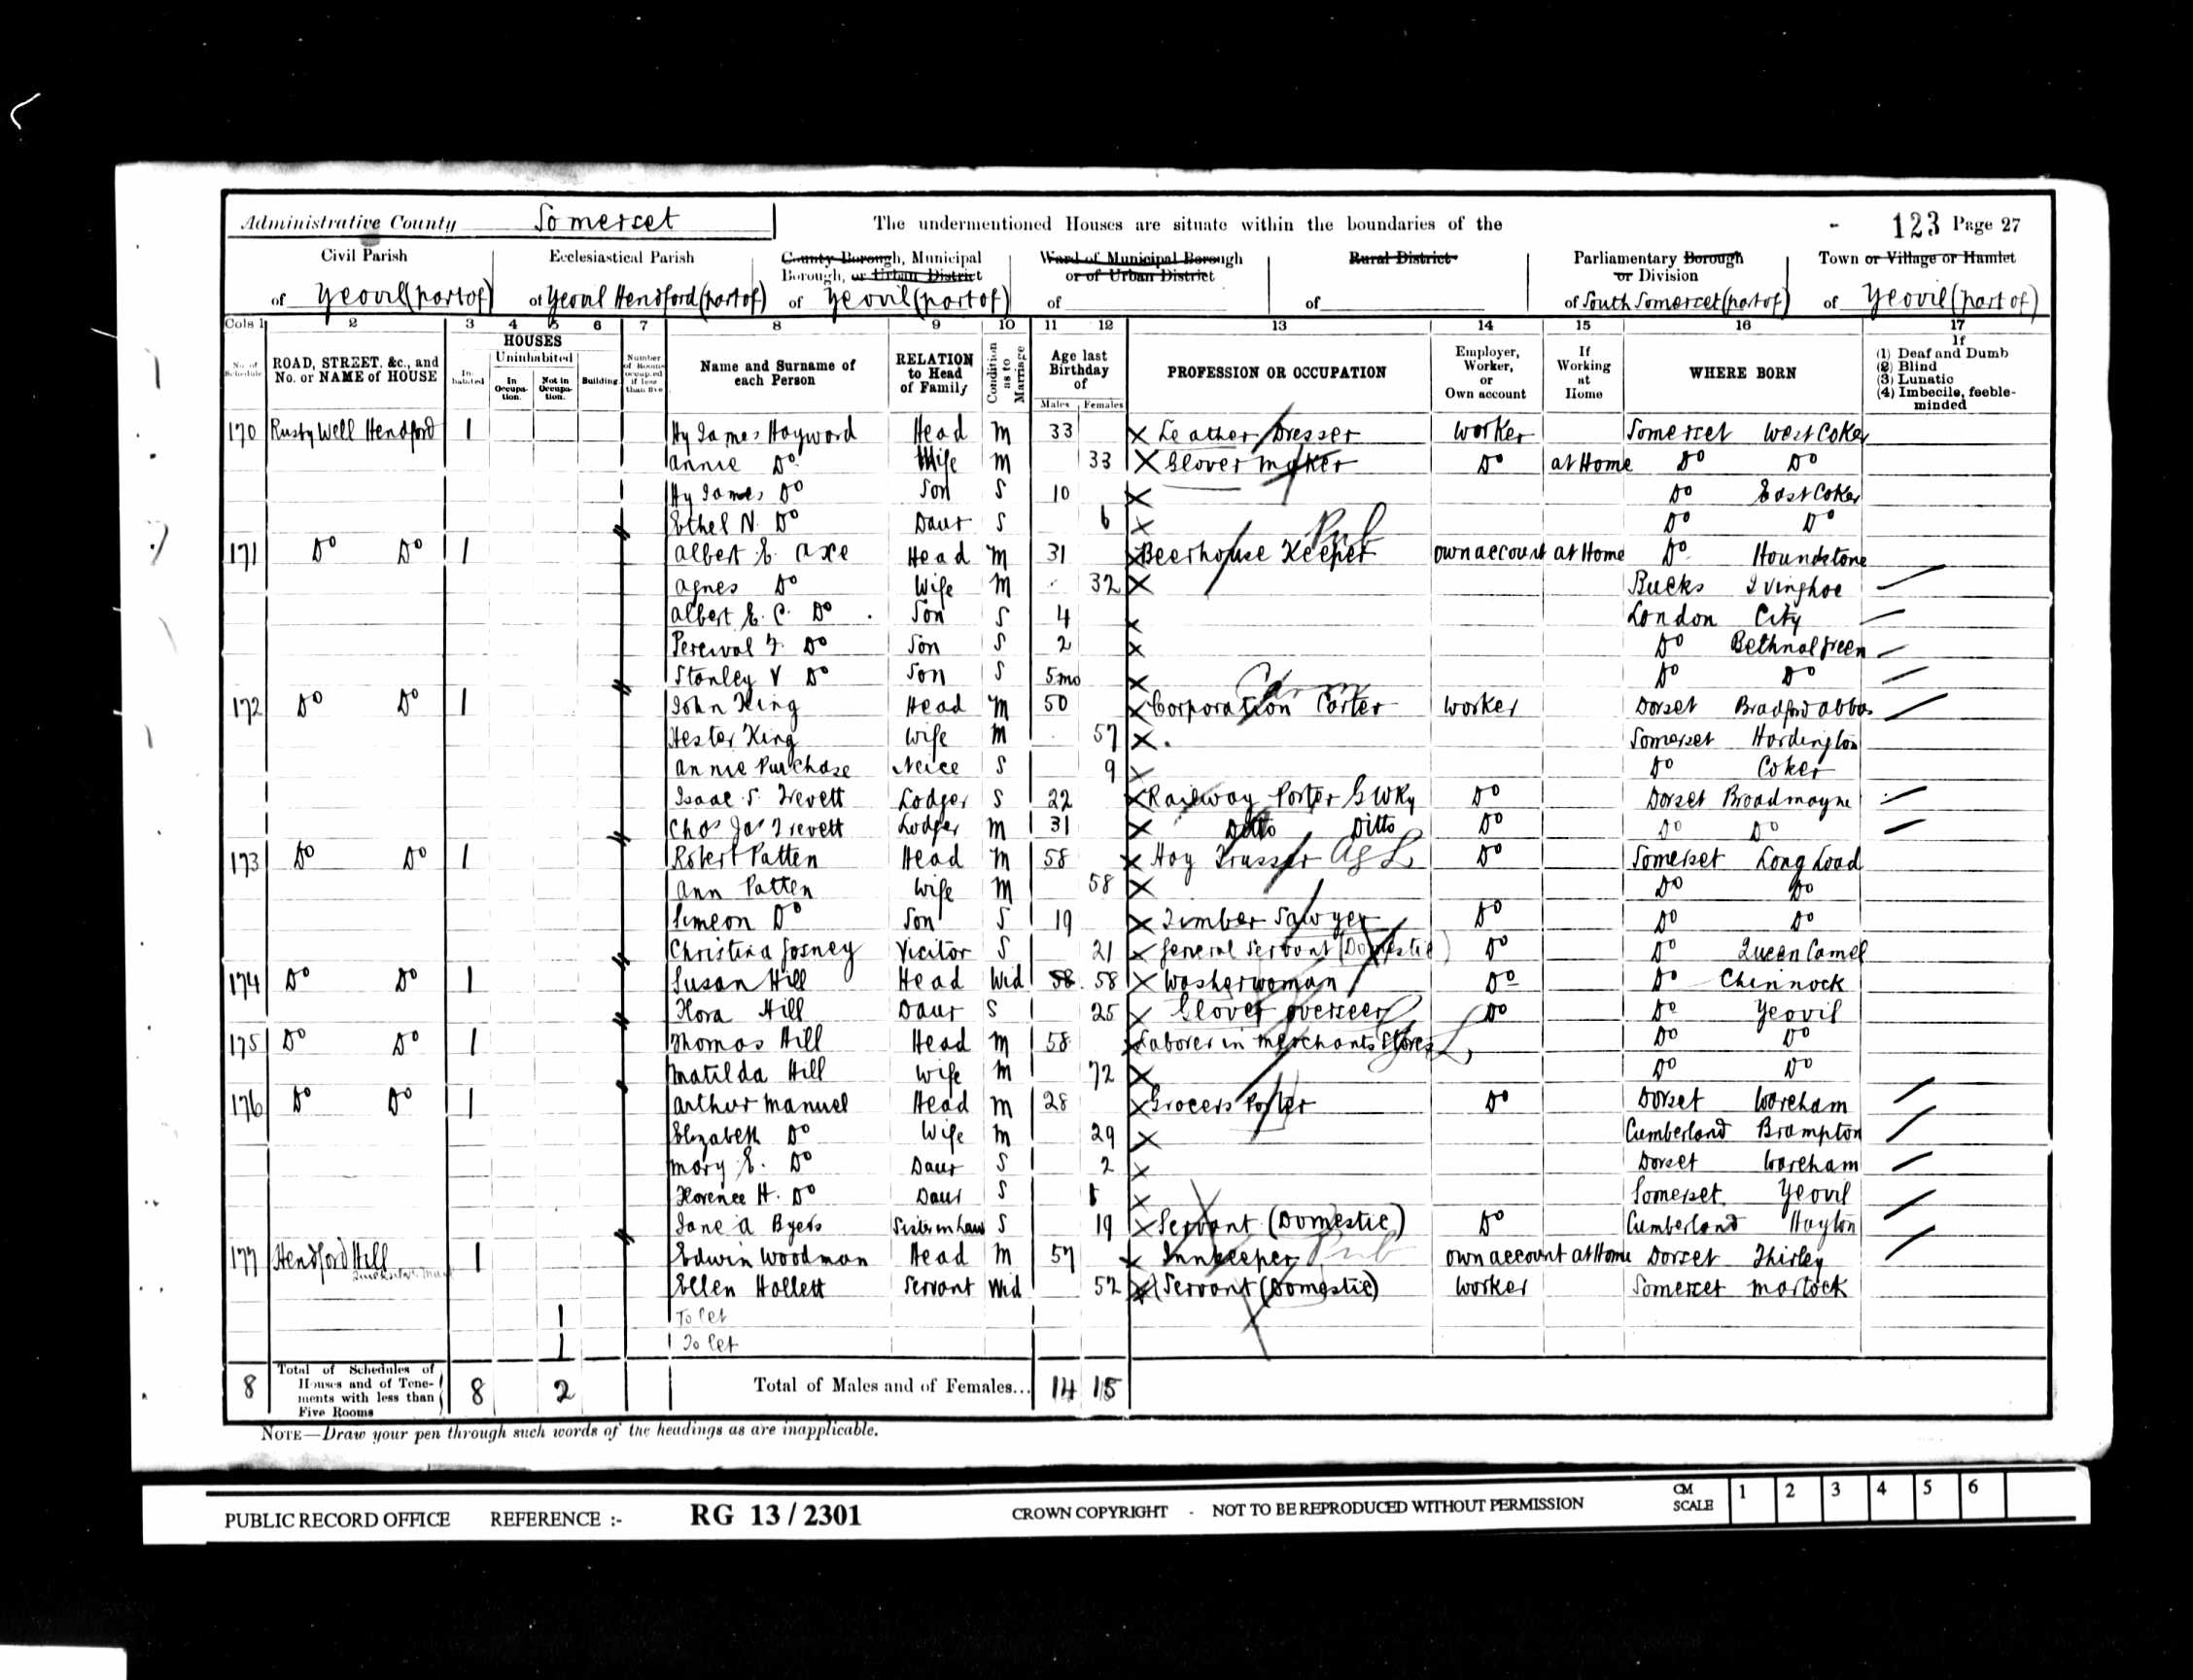 Administrative County Somerset The undermentioned Houses are situate within the boundaries of the 123 Page 27
Civil Parish Ecclesiastical Parish County Borough, Municipal Borough, or Urban District Ward of Municipal Borough or of Urban District Rural District Parliamentary Borough or Division Town or Village or Hamlet
of Yeovil (part of) of Yeovil Hendford (part of) of Yeovil (part of) of of of South Somerset (part of) of Yeovil (part of)
Cols 1 2 3 4 5 6 7 8 9 10 11 12 13 14 15 16 17
No. of Schedule ROAD, STREET, &c., and No. or NAME of HOUSE HOUSES Inhabited Uninhabited In Occupation. Not in Occupation. Building Number of Rooms occupied if less than five Name and Surname of each Person RELATION to Head of Family Condition as to Marriage Age last Birthday of Males Females PROFESSION OR OCCUPATION Employer, Worker, or Own account If Working at Home WHERE BORN If (1) Deaf and Dumb (2) Blind (3) Lunatic (4) Imbecile, feeble-minded
170 Rusty Well Hendford 1 Hy James Hayward Head M 33 Leather Dresser Worker Somerset West Coker
Annie Do Wife M 33 Glover maker Do at Home Do Do
Hy James Do Son S 10 Do East Coker
Ethel N. Do Daur S 6 Do Do
171 Do Do 1 Albert E. Axe Head M 31 Beerhouse Keeper Pub own account at Home Do Houndstone
Agnes Do Wife M 32 Bucks Ivinghoe
Albert E. C. Do Son S 4 London City
Percival F. Do Son S 2 Do Bethnal Green
Stanley V Do Son S 5mo Do Do
172 Do Do 1 John King Head M 50 Corporation Carter Carm Worker Dorset Bradford Abbas
Hester King Wife M 57 Somerset Hardington
Annie Purchase Neice S 9 Do Coker
Isaac S. Trevett Lodger S 22 Railway Porter G W Ry Do Dorset Broadmayne
Chas Jas Trevett Lodger M 31 Ditto Ditto Do Do Do
173 Do Do 1 Robert Patten Head M 58 Hay Trusser Ag L Do Somerset Long Load
Ann Patten Wife M 58 Do Do
Simeon Do Son S 19 Timber Sawyer Do Do Do
Christina Gosney Visitor S 21 General Servant (Domestic) Do Do Queen Camel
174 Do Do 1 Susan Hill Head Wid 58 58 Washerwoman Do Do Chinnock
Flora Hill Daur S 25 Glover overseer Do Do Yeovil
175 Do Do 1 Thomas Hill Head M 58 Laborer in Merchants Stores L Do Do
Matilda Hill Wife M 72 Do Do
176 Do Do 1 Arthur Manuel Head M 28 Grocers Porter Do Dorset Wareham
Elizabeth Do Wife M 29 Cumberland Brampton
Mary E. Do Daur S 2 Dorset Wareham
Florence H. Do Daur S Somerset Yeovil
Jane A Byers Sister in Law S 19 Servant (Domestic) Do Cumberland Hayton
177 Hendford Hill 1 Edwin Woodman Head M 57 Innkeeper Pub own account at Home Dorset Thirley
Ellen Hallett Servant Wid 52 Servant (Domestic) Worker Somerset Martock
1 To let
1 To let
8 Total of Schedules of Houses and of Tenements with less than Five Rooms 8 2 Total of Males and of Females... 14 15
NOTE—Draw your pen through such words of the headings as are inapplicable.
PUBLIC RECORD OFFICE REFERENCE :- RG 13 / 2301 CROWN COPYRIGHT - NOT TO BE REPRODUCED WITHOUT PERMISSION CM SCALE 1 2 3 4 5 6